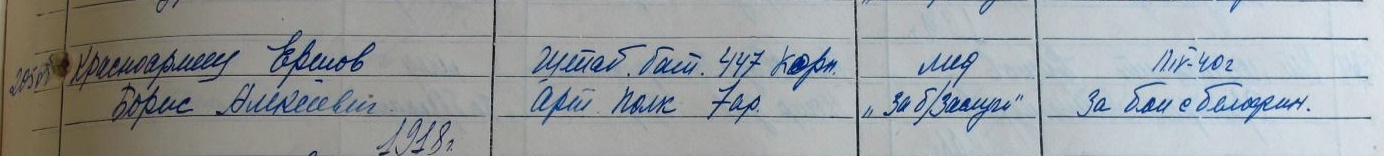 Красноармеец Ермов Штаб. бат. 447 Корп. мед IIIV-40г
Борис Алексеевич Арт Полк 7 ар. "За б/Заслуги" За бои с белофин.
1918г.